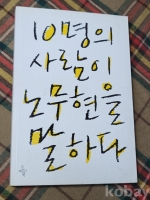 10명의
사람이
노무현을
말하다
kobay